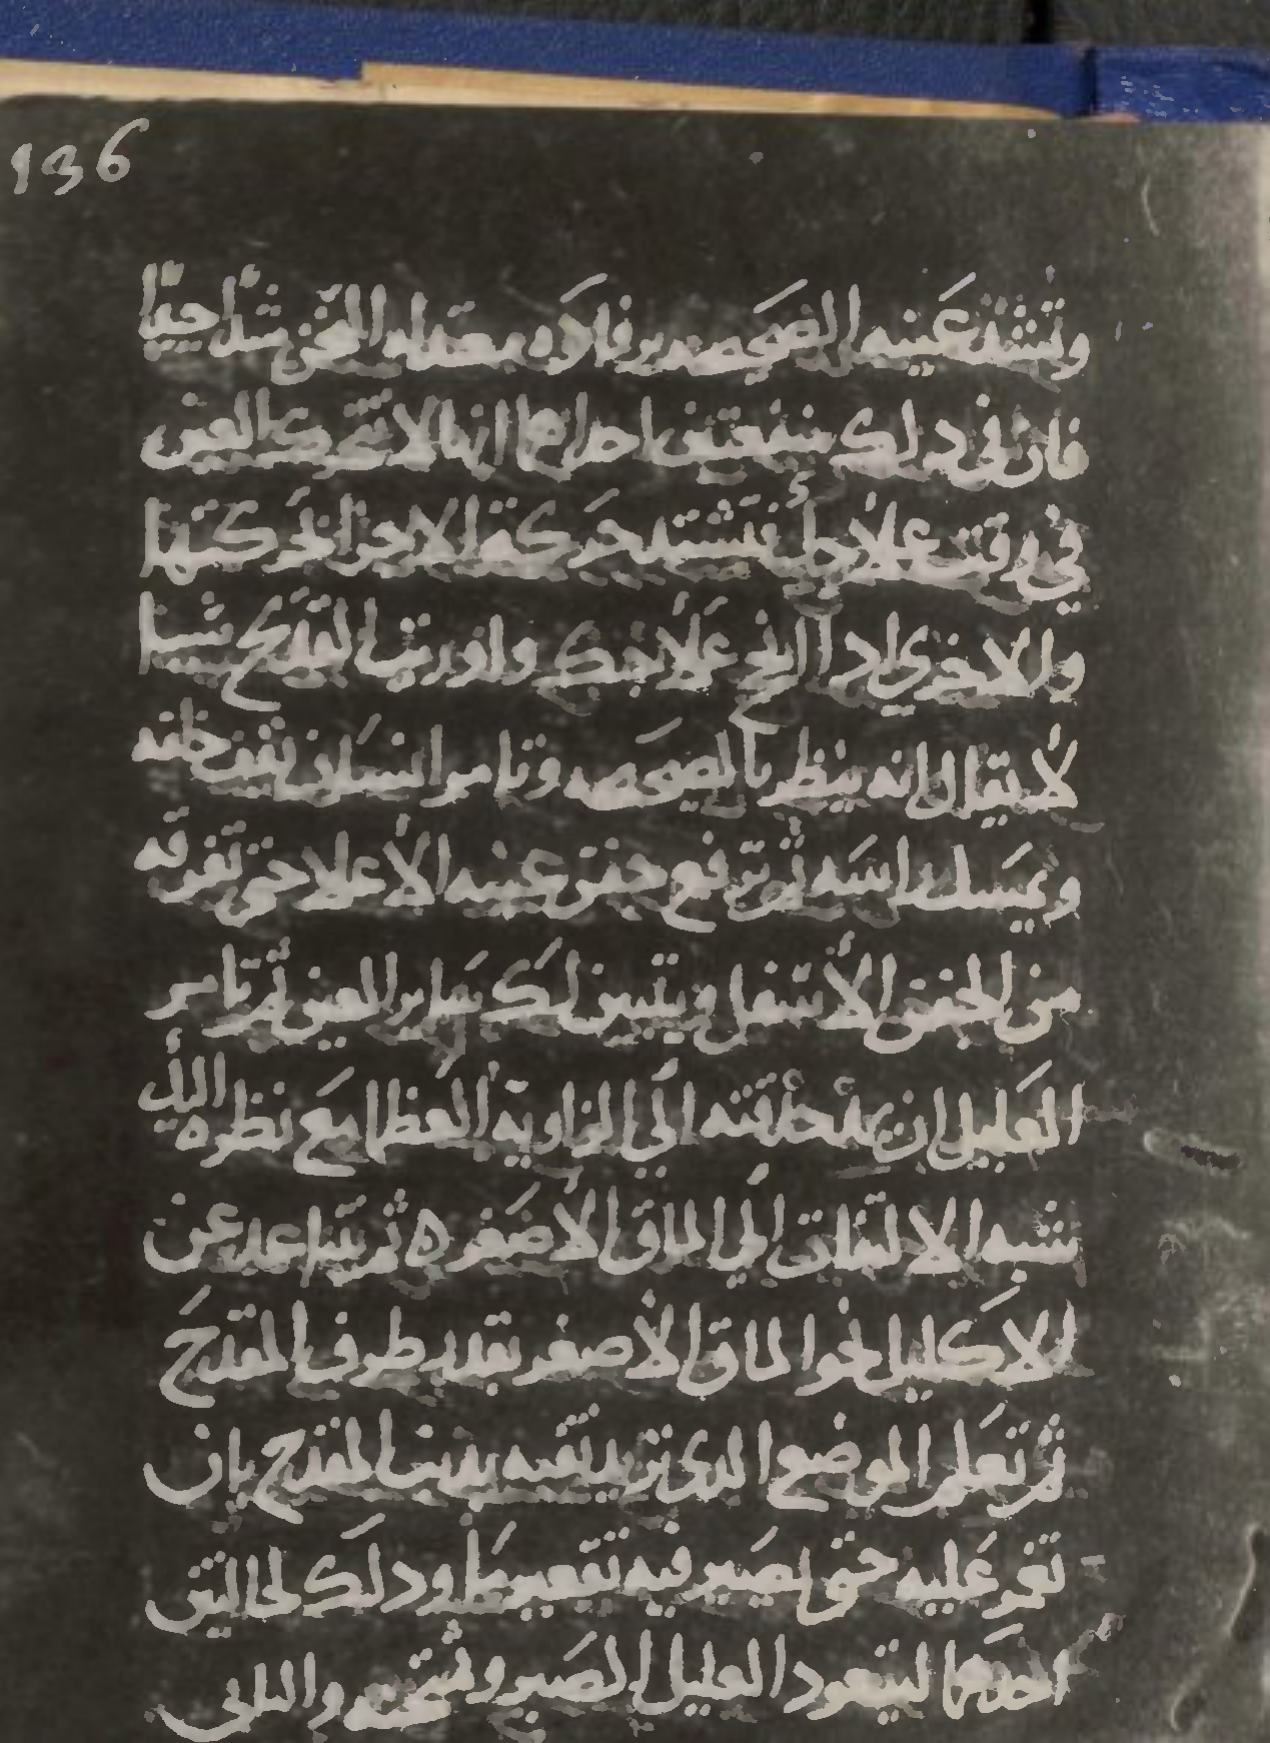 136
وتشد عينه الصحيحه برفاده معتدله الثخن شدا جيدا
فان في ذلك منفعتين احداهما انها لا تتحرك العين
في وقت علاجك فتشتد حركة الاخرا لحركتها
والاخرى اذا انجح علاجك واوريته القدح شيا
لا يقال انه ينظر بالصحيحه وتامر انسان يقف خلفه
ويمسك راسه ثم ترفع جفن عينه الاعلا حتى تفرقه
من الجفن الاسفل ويتبين لك ساير العين ثم تامر
العليل ان يمد حدقته الي الزاوية العظما مع نظره اليك
شبه الالتفات الي الماق الاصغر ثم تتباعد عن
الاكليل نحوا الماق الاصغر بقدر طرف المقدح
ثم تعلم الموضع الذي تريد ثقبه بدنب المقدح بان
تغمز عليه حتى يصير فيه تقعير ما وذلك لحالتين
احدهما ليتعود العليل الصبر وتمتحنه والثاني